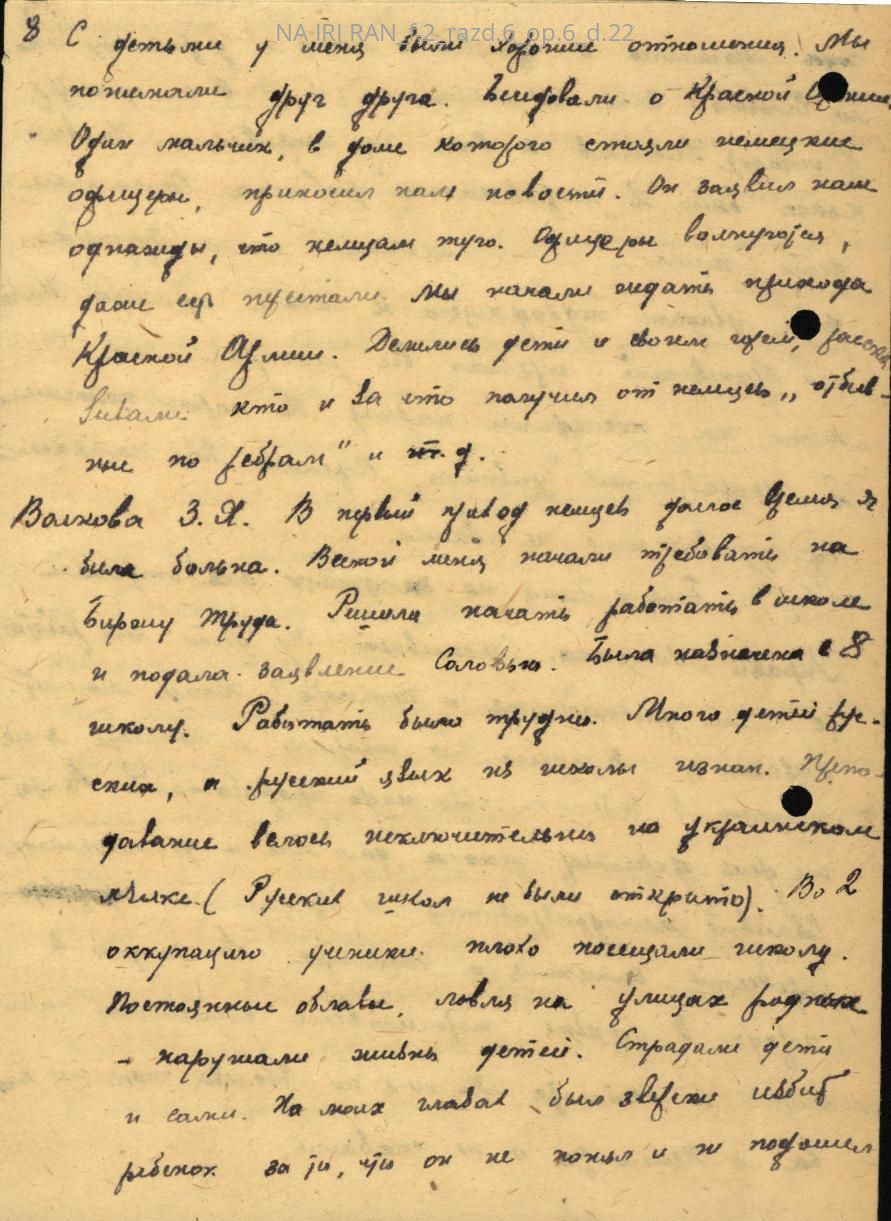 NA IRI RAN f.2 razd.6 op.6 d.22
8 С детьми у меня были хорошие отношения. Мы
понимали друг друга. Беседовали о Красной Армии.
Один мальчик, в доме которого стояли немецкие
офицеры, приносил нам новости. Он заявил нам
однажды, что немцам туго. Офицеры волнуются,
даже есть перестали. Мы начали ждать прихода
Красной Армии. Делились дети и своим горем, расска
зывали кто и за что получил от немцев „отбив-
ные по ребрам" и т.д.
Волкова З.Я. В первый приход немцев долгое время я
была больна. Весной меня начали требовать на
Биржу труда. Решила начать работать в школе
и подала заявление Соловью. Была назначена в 8
школу. Работать было трудно. Много детей ру-
ских, а русский язык из школы изгнан. Препо-
давание велось исключительно на украинском
языке (Русских школ не было открыто). Во 2
оккупацию ученики плохо посещали школу.
Постоянные облавы, ловля на улицах родных
- нарушали жизнь детей. Страдали дети
и сами. На моих глазах был зверски избит
ребенок за то, что он не понял и не подошел